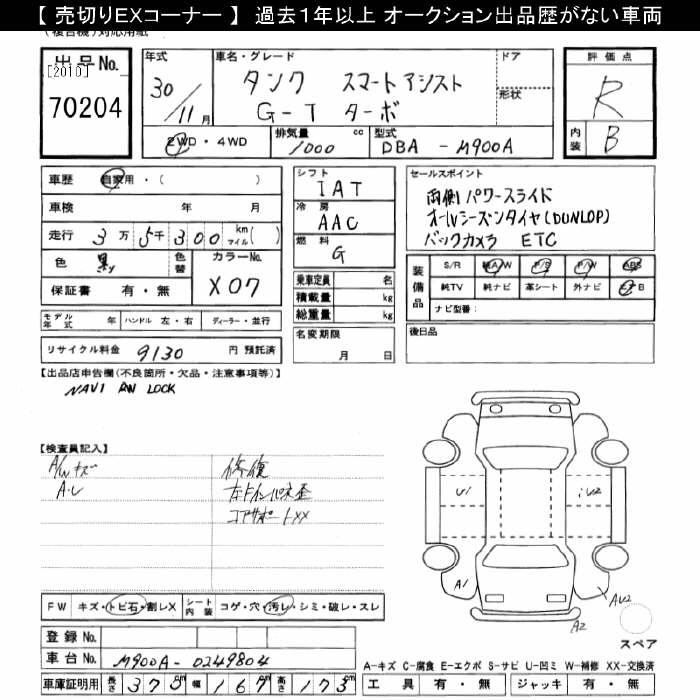 【 売切りEXコーナー 】 過去1年以上 オークション出品歴がない車両
(複合機)対応用紙
出品No.
[2010]
70204
年式 30/11月
車名・グレード
タンク スマートアシスト
G-T ターボ
ドア
形状
2WD・4WD
排気量 1000 cc
型式 DBA - M900A
評価点
R
内装 B
車歴 自家用・( )
車検 年 月
走行 3万5千300 km マイル( )
色 黒
色替
カラーNo. X07
保証書 有・無
シフト
IAT
冷房
AAC
燃料
G
乗車定員 名
積載量 kg
総重量 kg
名変期限
月 日
セールスポイント
両側パワースライド
オールシーズンタイヤ(DUNLOP)
バックカメラ ETC
装備品
S/R 純A/W P/S P/W ABS
純TV 純ナビ 革シート 外ナビ エB
ナビ型番:
後日品
モデル年式 年 ハンドル 左・右 ディーラー・並行
リサイクル料金 9130 円 預託済
【出品店申告欄(不良箇所・欠品・注意事項等)】
NAVI RW LOCK
【検査員記入】
A/Wキズ
A・U
修復
左ドインパネ歪
コアサポートXX
U1
U2
A1
AU2
A2
FW キズ・トビ石・割レX
シート内装 コゲ・穴・汚レ・シミ・破レ・スレ
スペア
登録No.
車台No. M900A-0249804
A-キズ C-腐食 E-エクボ S-サビ U-凹ミ W-補修 XX-交換済
車庫証明用 長さ 370 幅 167 高さ 173
工具 有・無 ジャッキ 有・無